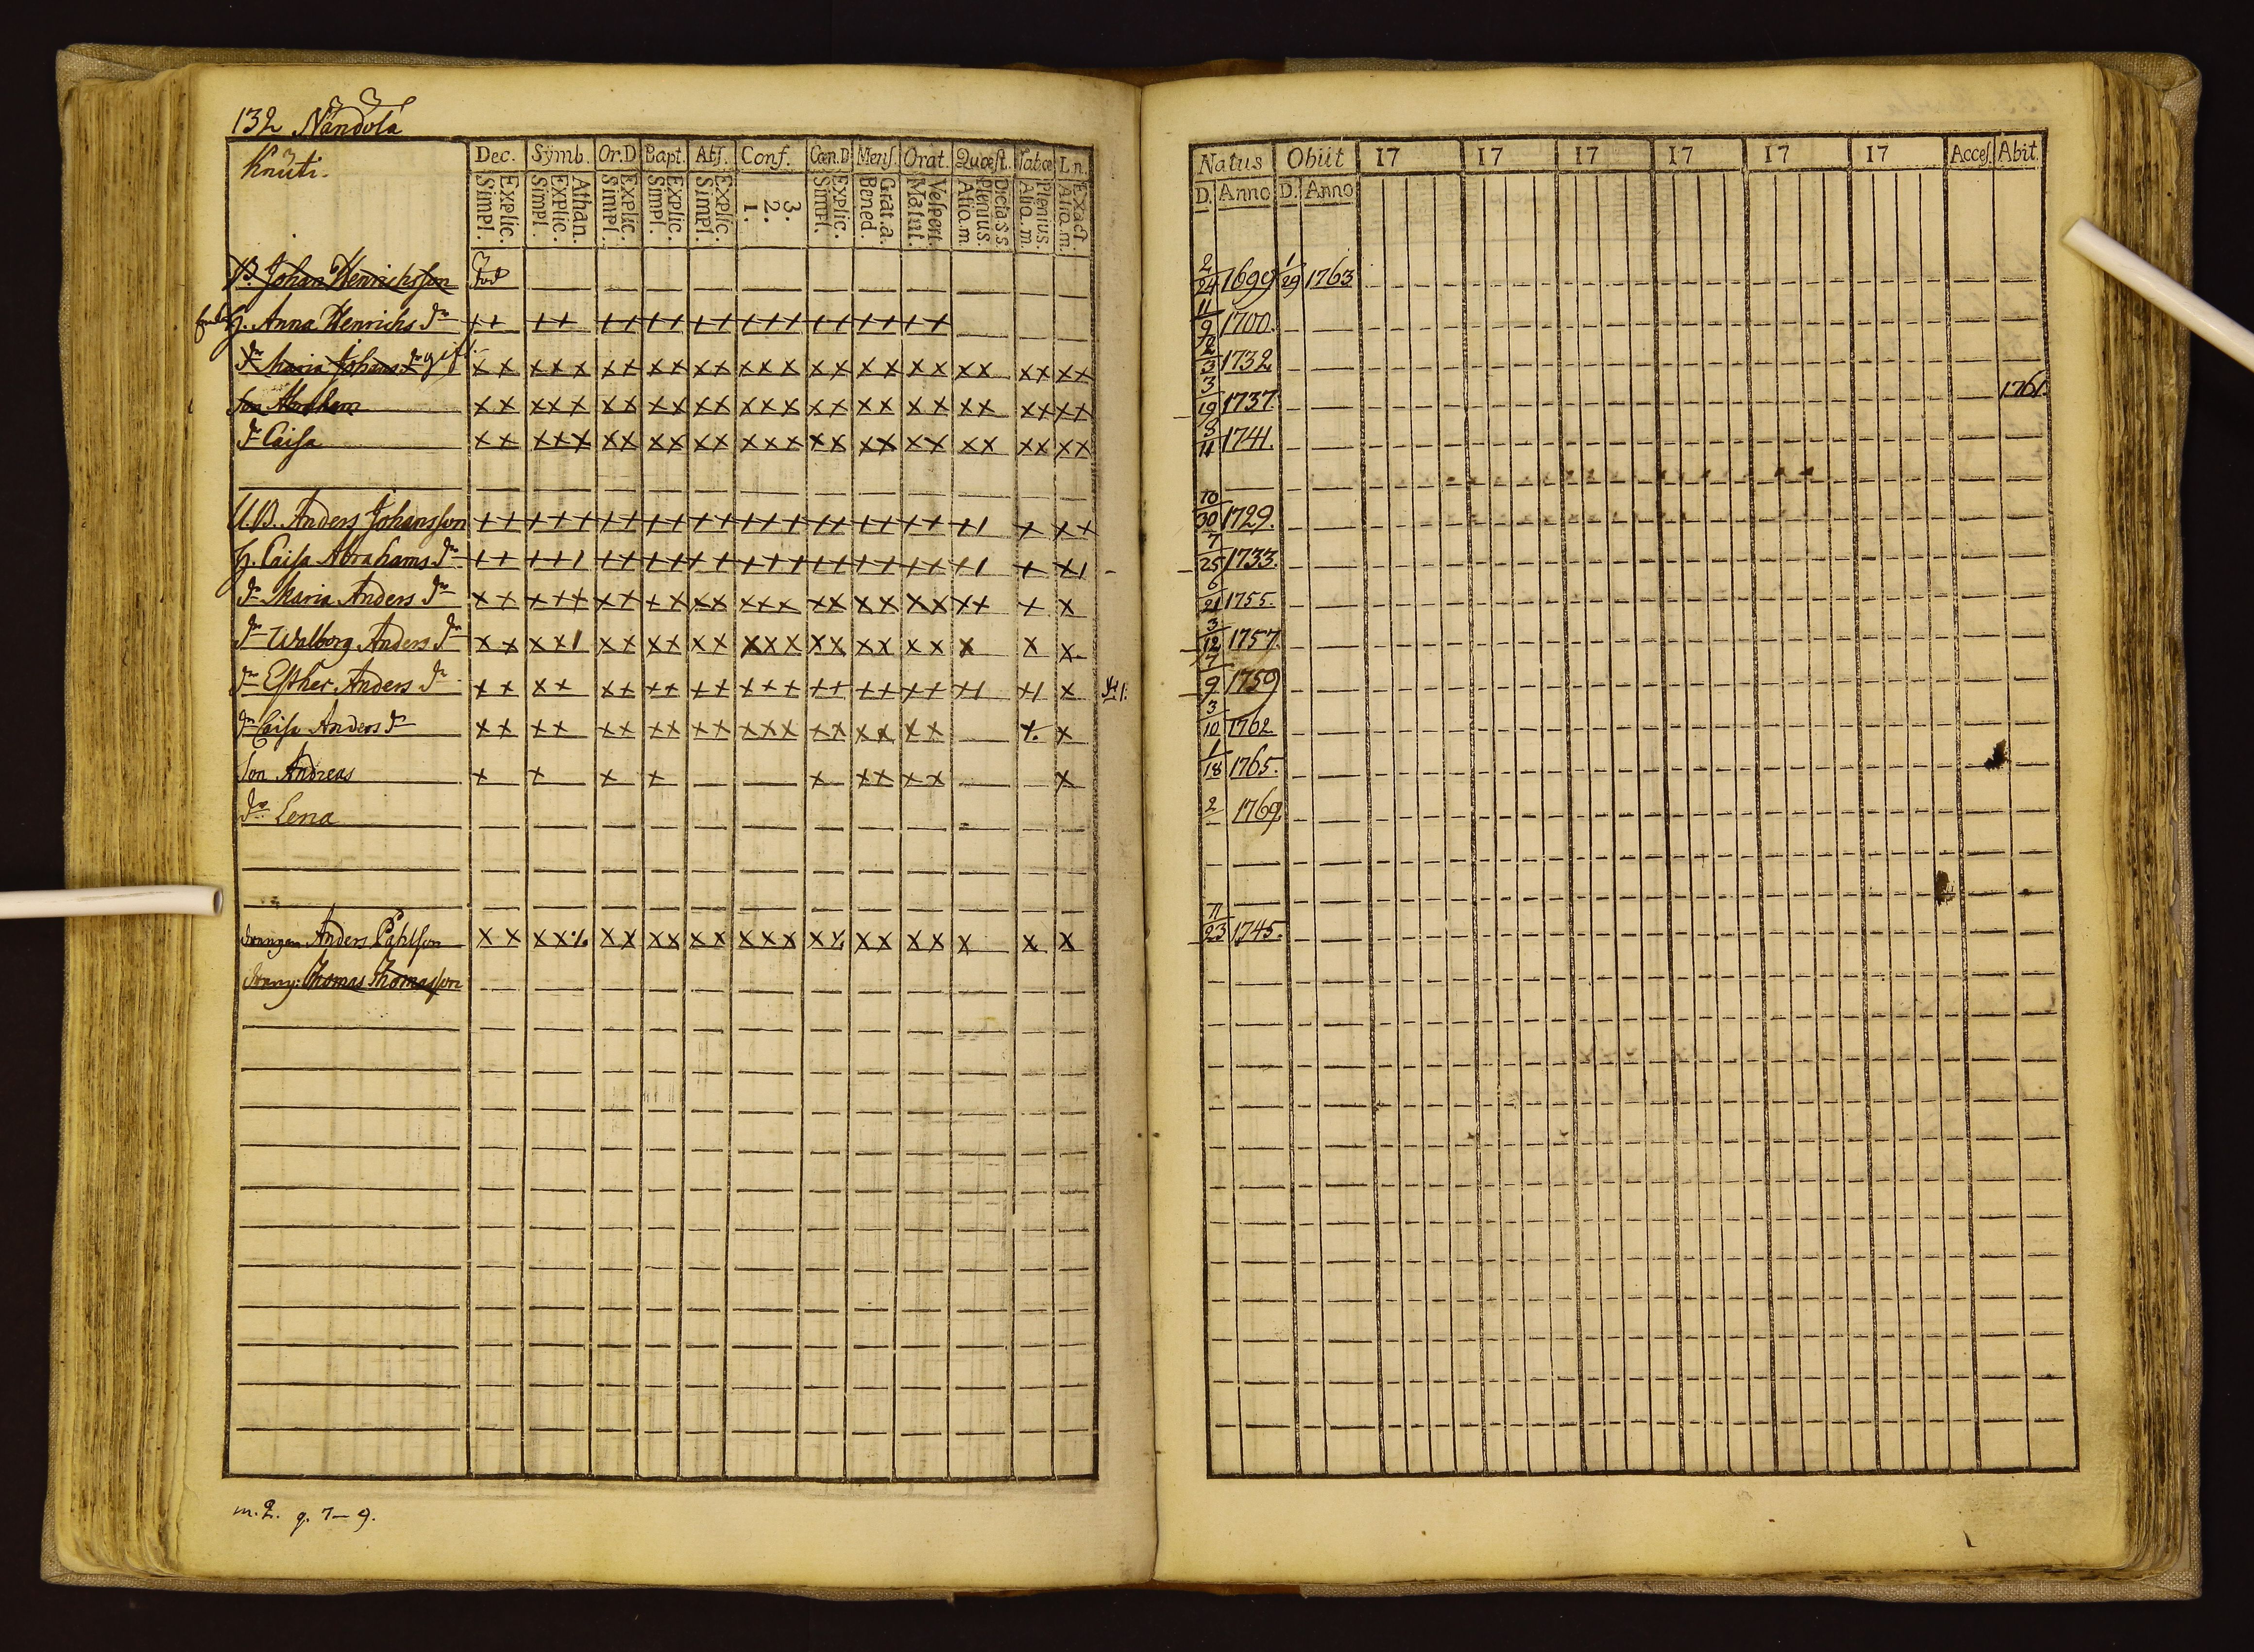 132 Nändölä
Knuti.
Dec. Symb. Or.D Bapt. Abs. Conf. Cœn.D Mens. Orat. Quæst. Tab.œ L.n.
Simpl. Explic. Simpl. Explic. Athan. Simpl. Explic. Simpl. Explic. Simpl. Explic. 1. 2. 3. Simpl. Explic. Bened. Grat.a. Matut. Vespert. Aliq.m. Plenius. Dicta s.s. Aliq.m. Plenius. Aliq.m. Exact
Natus Obiit 17 17 17 17 17 17 Acces. Abit.
D. Anno D. Anno
B. Johan Henrichsson död 2/24 1699 1/29 1763
H. Anna Henrichs dr 11/9 1700.
dr Maria Johans dr gift x x x x x x x x x x x x x x x x x x x x x x x x x x 2/3 1732
Son Abraham x x x x x x x x x x x x x x x x x x x x x x x x x x 3/19 1737 1761.
dr Caisa x x x x x x x x x x x x x x x x x x x x x x x x x x 8/11 1741.
U.B. Anders Johansson 10/30 1729.
H. Caisa Abrahams dr 7/25 1733.
dr Maria Anders dr 6/21 1755.
dr Walborg Anders dr 3/12 1757.
dr Esther Anders dr 7/9 1759
dr Caisa Anders dr 3/10 1762
Son Andreas x x x x x x x x x x 1/18 1765.
dr Lena 2 1769
drängen Anders Påhlsson 11/23 1745.
dräng: Thomas Thomasson
m. 2. q. 7-9.